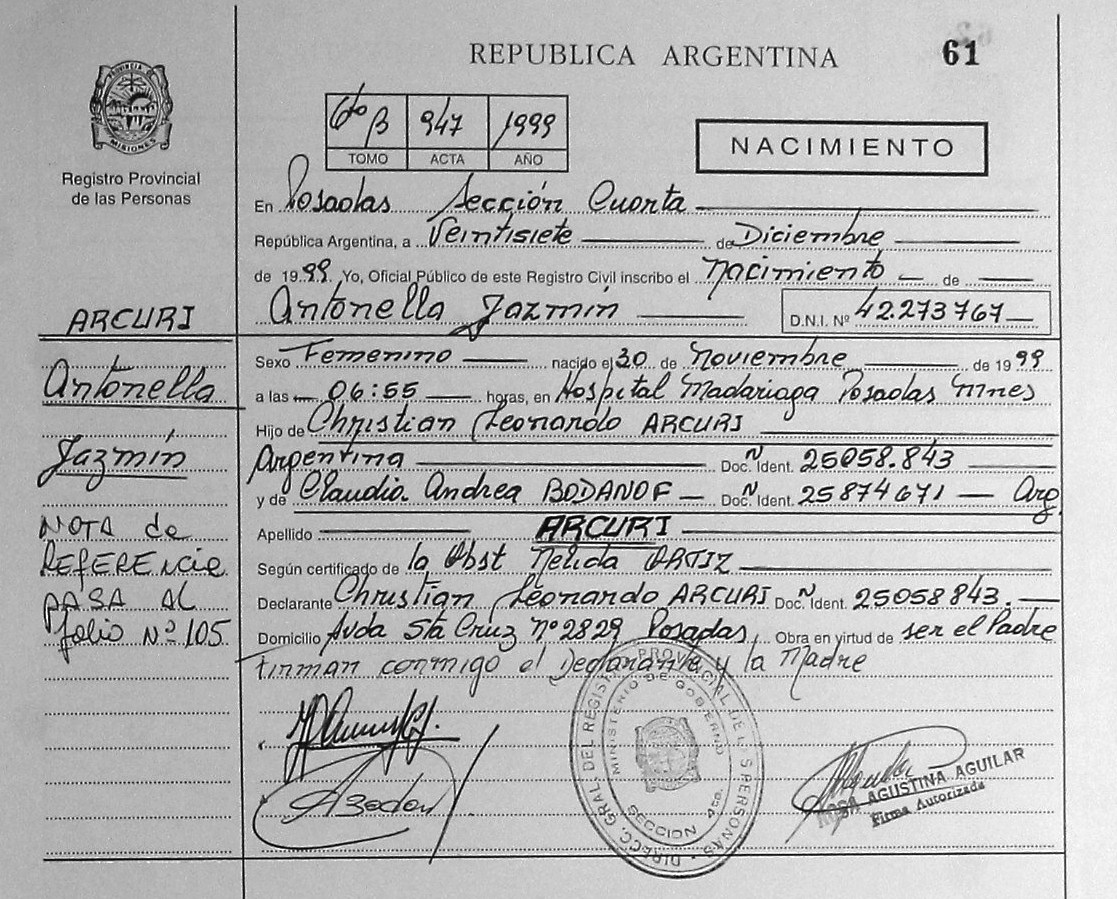 REPUBLICA ARGENTINA
61
PROVINCIA DE MISIONES
Registro Provincial
de las Personas
6to B 947 1999
TOMO ACTA AÑO
NACIMIENTO
En Posadas Sección Cuarta
República Argentina, a Veintisiete de Diciembre
de 1999 Yo, Oficial Público de este Registro Civil inscribo el nacimiento de
Antonella Jazmín D.N.I. Nº 42.273767
Sexo Femenino nacido el 30 de Noviembre de 1999
a las 06:55 horas, en Hospital Madariaga Posadas Mnes
Hijo de Christian Leonardo ARCURI
Argentina Doc. Ident. 25058.843
y de Claudia Andrea BODANOF Doc. Ident. 25874671 Arg
Apellido ARCURI
Según certificado de la Obst Nelida ORTIZ
Declarante Christian Leonardo ARCURI Doc. Ident. 25058843.
Domicilio Avda Sta Cruz nº 2829 Posadas, Obra en virtud de ser el Padre
Firman conmigo el Declarante y la Madre
ARCURI
Antonella
Jazmín
NOTA de
REFERENCIA
PASA AL
folio Nº 105
DIRECC. GRAL. DEL REGIST. PROVINCIAL DE LAS PERSONAS
MINISTERIO DE GOBIERNO
SECCION 4ta.
ROSA AGUSTINA AGUILAR
Firma Autorizada